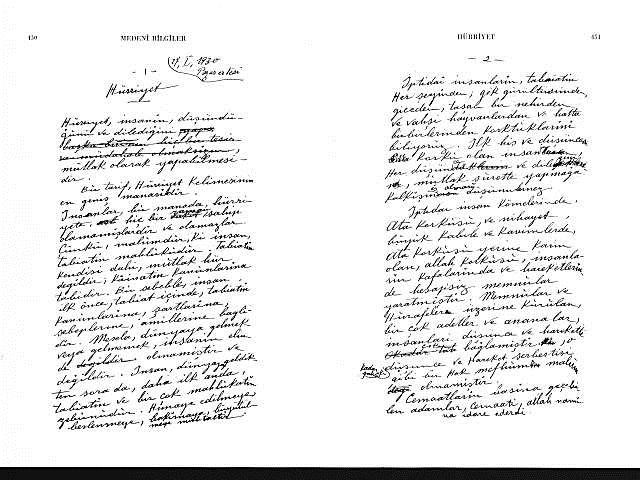 450
MEDENÎ BİLGİLER
17, I, 1930
Pazartesi
- 1 -
Hürriyet
Hürriyet, insanın, düşündü-
ğünü ve dilediğini
mutlak olarak yapabilmesi-
dir.
Bu tarif, Hürriyet kelimesinin
en geniş manasıdır.
İnsanlar, bu manada, hürri-
yete, hiç bir sahip
olamamışlardır ve olamazlar.
Çünkü, malûmdur, ki insan,
tabiatın mahlûkudur. Tabiatın
kendisi dahi, mutlak hür
değildir; kâinatın kanunlarına
tâbidir. Bu sebeble, insan,
ilk önce, tabiat içinde, tabiatın
kanunlarına, şartlarına,
sebeplerine, amillerine bağlı-
dır. Mesela, dünyaya gelmek
veya gelmemek, insanın elin-
de olmamıştır ve
değildir. İnsan, dünyaya geldik-
ten sora da, daha ilk anda,
tabiatın ve bir çok mahlûkatın
zebunudur. Himaye edilmeye,
beslenmeye, bakılmaya, büyütül-
meye muhtaçtır.
HÜRRİYET
451
- 2 -
İptidaî insanların, tabiatın
Her şeyinden, gök gürültüsünden,
geceden, taşan bir nehirden
ve vahşi hayvanlardan ve hatta
birbirlerinden korktuklarını
biliyoruz. İlk his ve düşünce
korku olan insanın,
Her düşünce ve dileğinin
mutlak surette yapmağa
kalkışmış olması düşünülemez.
İptidaî insan kümelerinde,
Ata korkusu, ve nihayet,
büyük kabile ve kavimlerde,
Ata korkusu yerine kaim
olan, allah korkusu, insanla-
rın kafalarında ve hareketlerin-
de hesapsız memnular
yaratmıştır. Memnular ve
Hurafeler üzerine kurulan,
bir çok adetler ve ananalar,
insanları düşünce ve harekette
bağlamıştır.
düşünce ve Hareket serbestisi
gibi bir Hak mefhumu malûm
olmamıştır.
Cemaatların başına geçebi-
len adamlar, cemaati, allah namı-
na idare ederdi